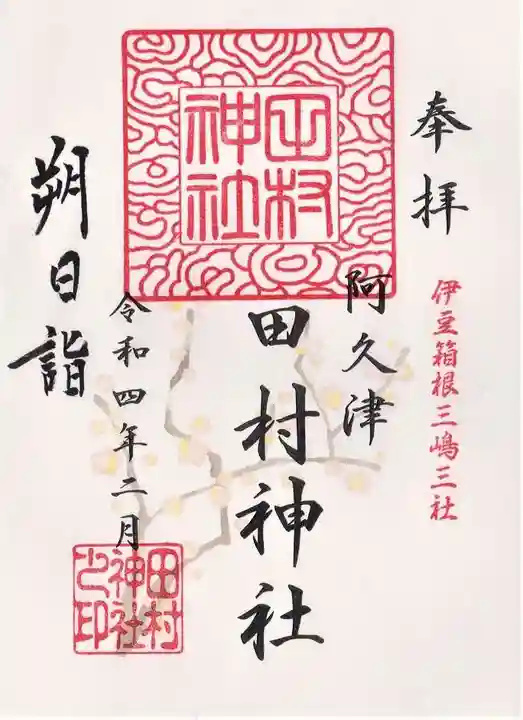 奉拝
伊豆箱根三嶋三社
阿久津
田村神社
田村神社
令和四年二月
田村神社之印
朔日詣